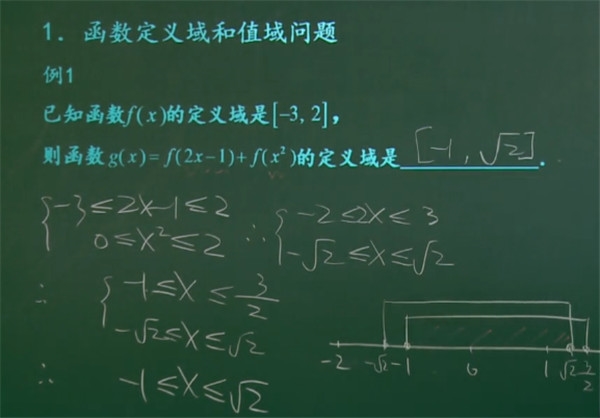 1. 函数定义域和值域问题
例1
已知函数f(x)的定义域是[-3, 2],
则函数g(x)=f(2x-1)+f(x²)的定义域是 [-1, √2] .
{-3≤2x-1≤2 ∴ {-2≤2x≤3
0≤x²≤2 -√2≤x≤√2
∴ {-1≤x≤3/2
-√2≤x≤√2
∴ -1≤x≤√2
-2 -√2 -1 0 1 √2 3/2